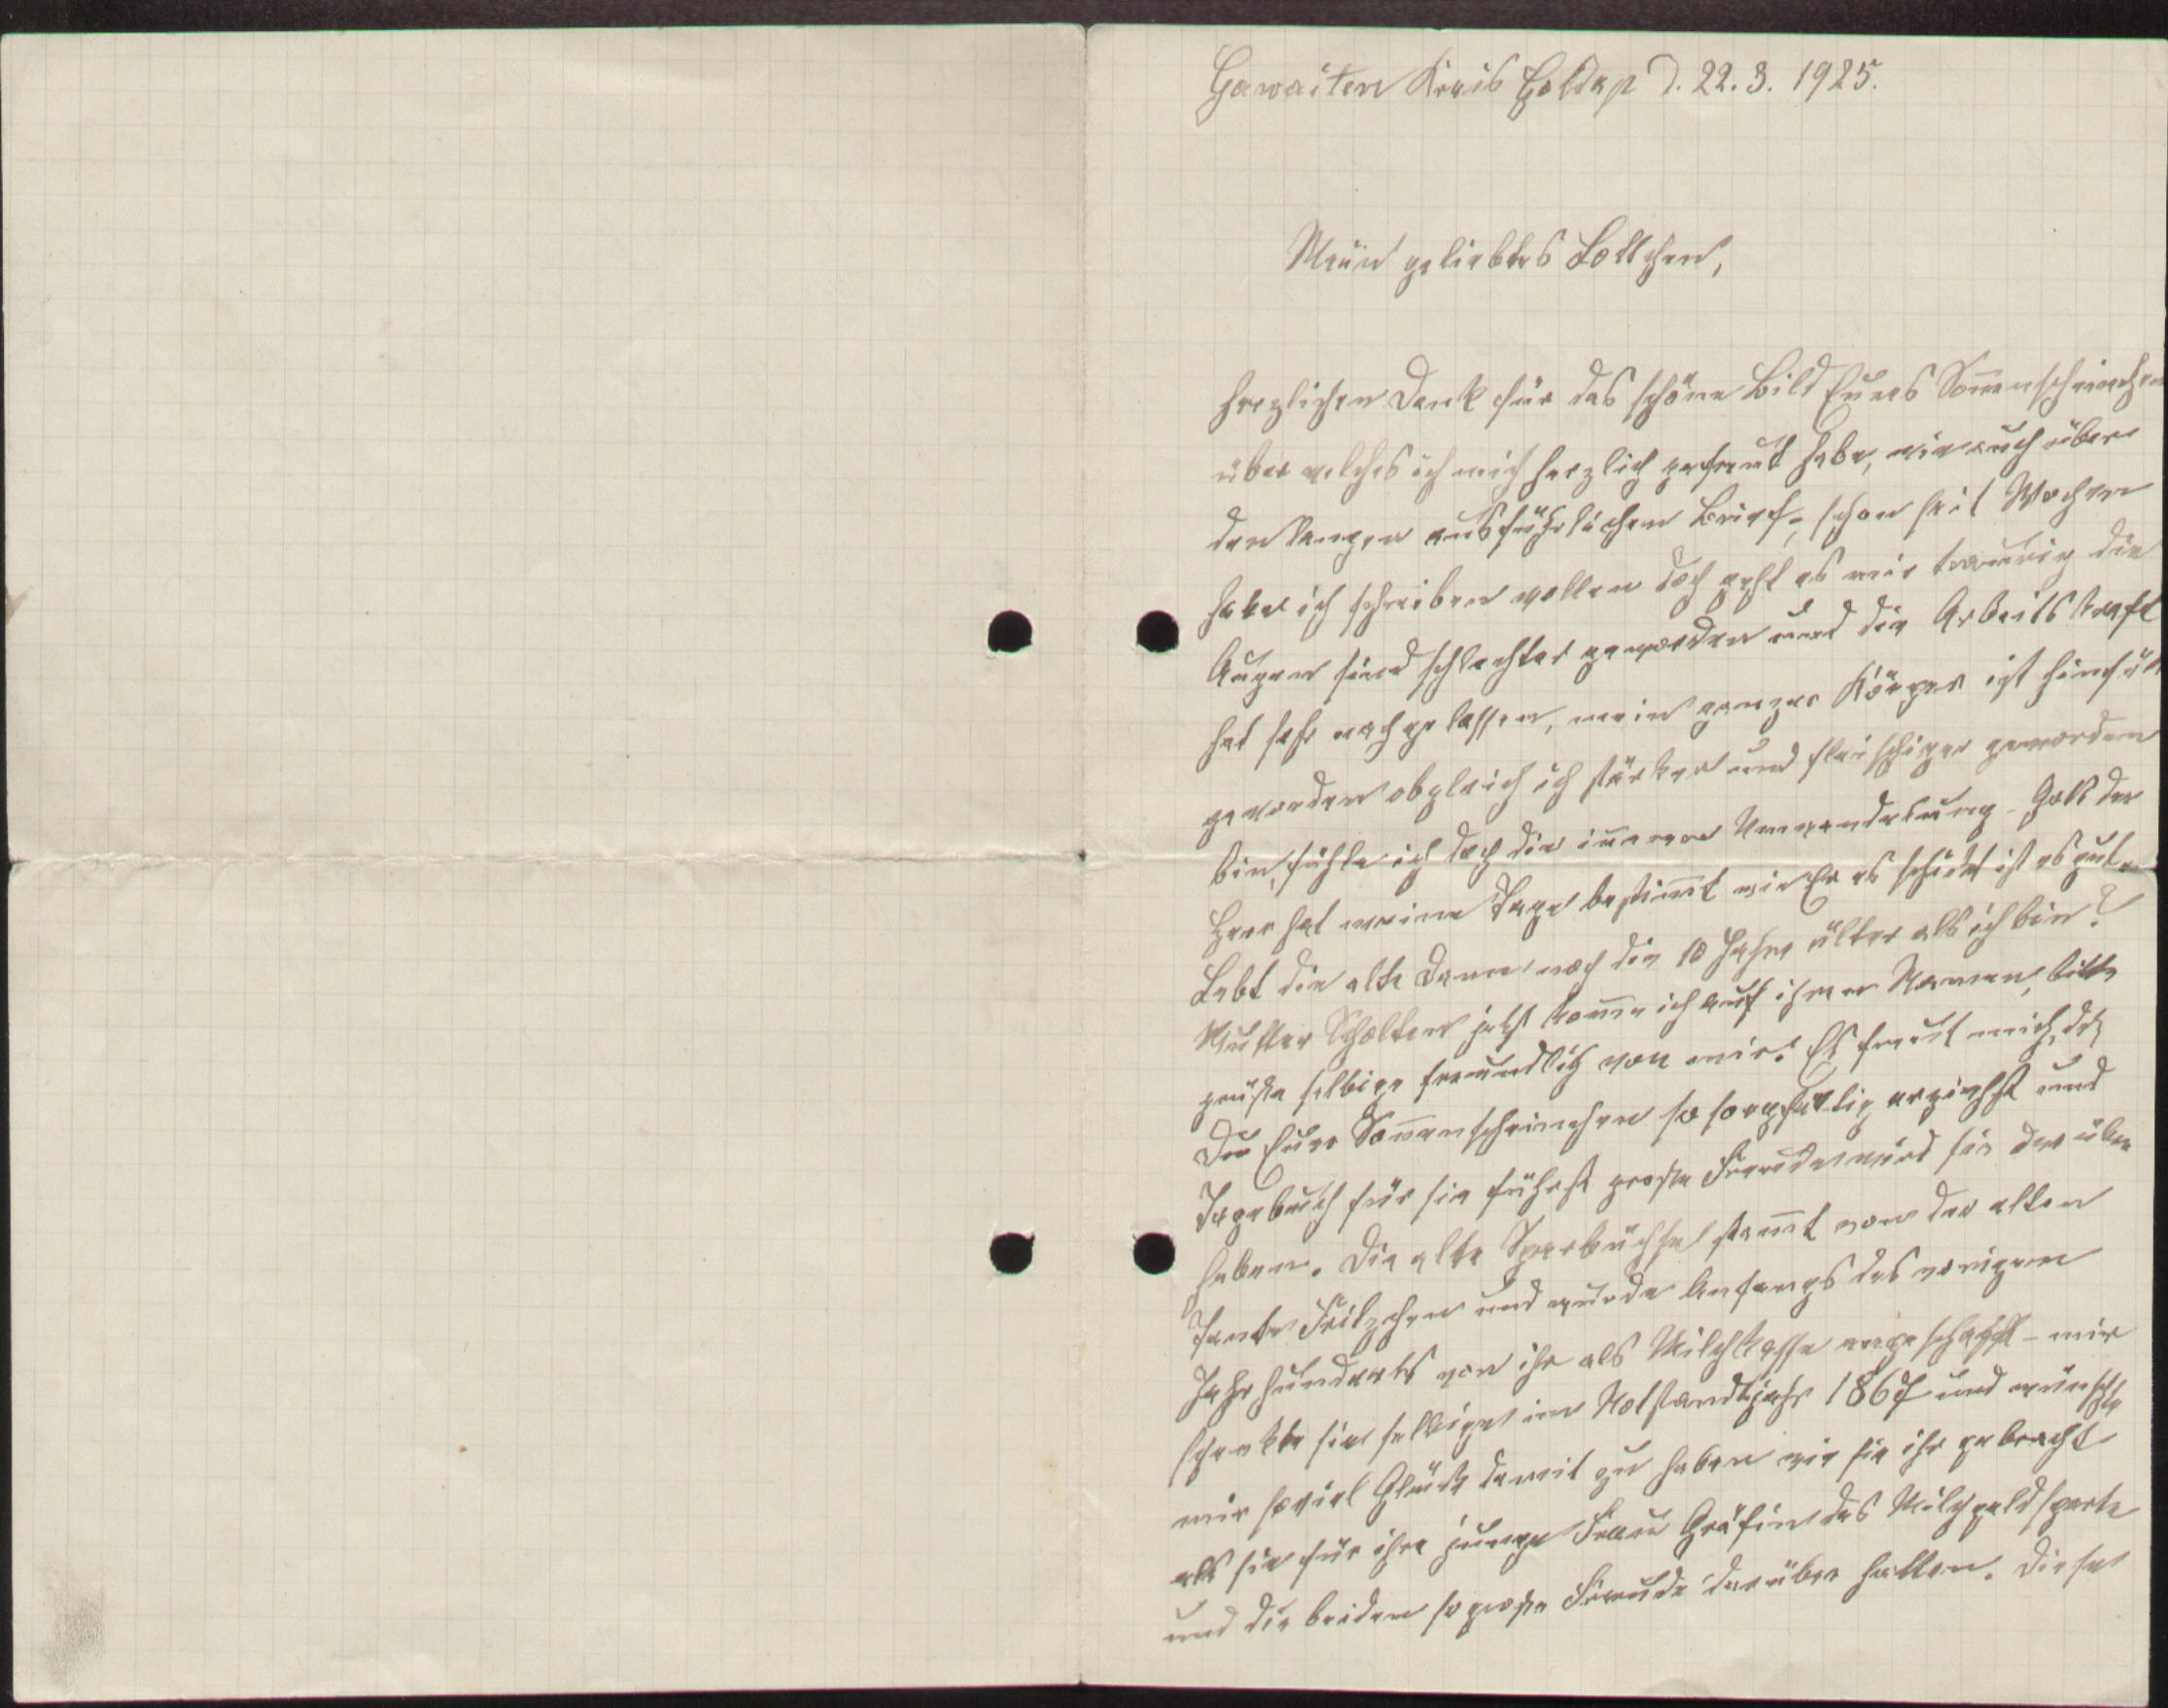 Gawaiten Kreis Goldap d. 22.3. 1925.
Mein geliebtes Lottchen,
herzlichen Dank für das schöne Bild Eures Sonnenscheinchen
über welches ich mich herzlich gefreut habe, wie auch über
den langen ausführlichen Brief, schon seit Wochen
habe ich schreiben wollen doch geht es mir traurig die
Augen sind schlechter geworden und die Arbeitskraft
hat sehr nachgelassen, mein ganzer Körper ist hinfäll
geworden obgleich ich stärker und fleischiger geworden
bin, fühle ich doch die innere Umwandelung - Gott der
Herr hat meine Tage bestimmt wie Er es schickt ist es gut
Lebt die alte Dame noch die 10 Jahre älter als ich bin?
Mutter Scholten jetzt komme ich auf ihren Namen, bitte
grüße selbige freundlich von mir. Es freut mich, dß
Du Eure Sonnenscheinchen so sorgfältig erziehst und
Tagebuch für sie führst große Freude wird sie darüber
haben. Die alte Sparbüchse stammt von der alten
Tante Fritzchen und wurde Anfangs des vorigen
Jahrhunderts von ihr als Milchkasse angeschafft - mir
schenkte sie selbige im Notstandtjahr 1867 und wünschte
mir soviel Glück damit zu haben wie sie ihr gebracht
als sie für ihre junge Frau Gräfin das Milchgeld sparte
und die beiden so große Freude darüber hatten. Diese